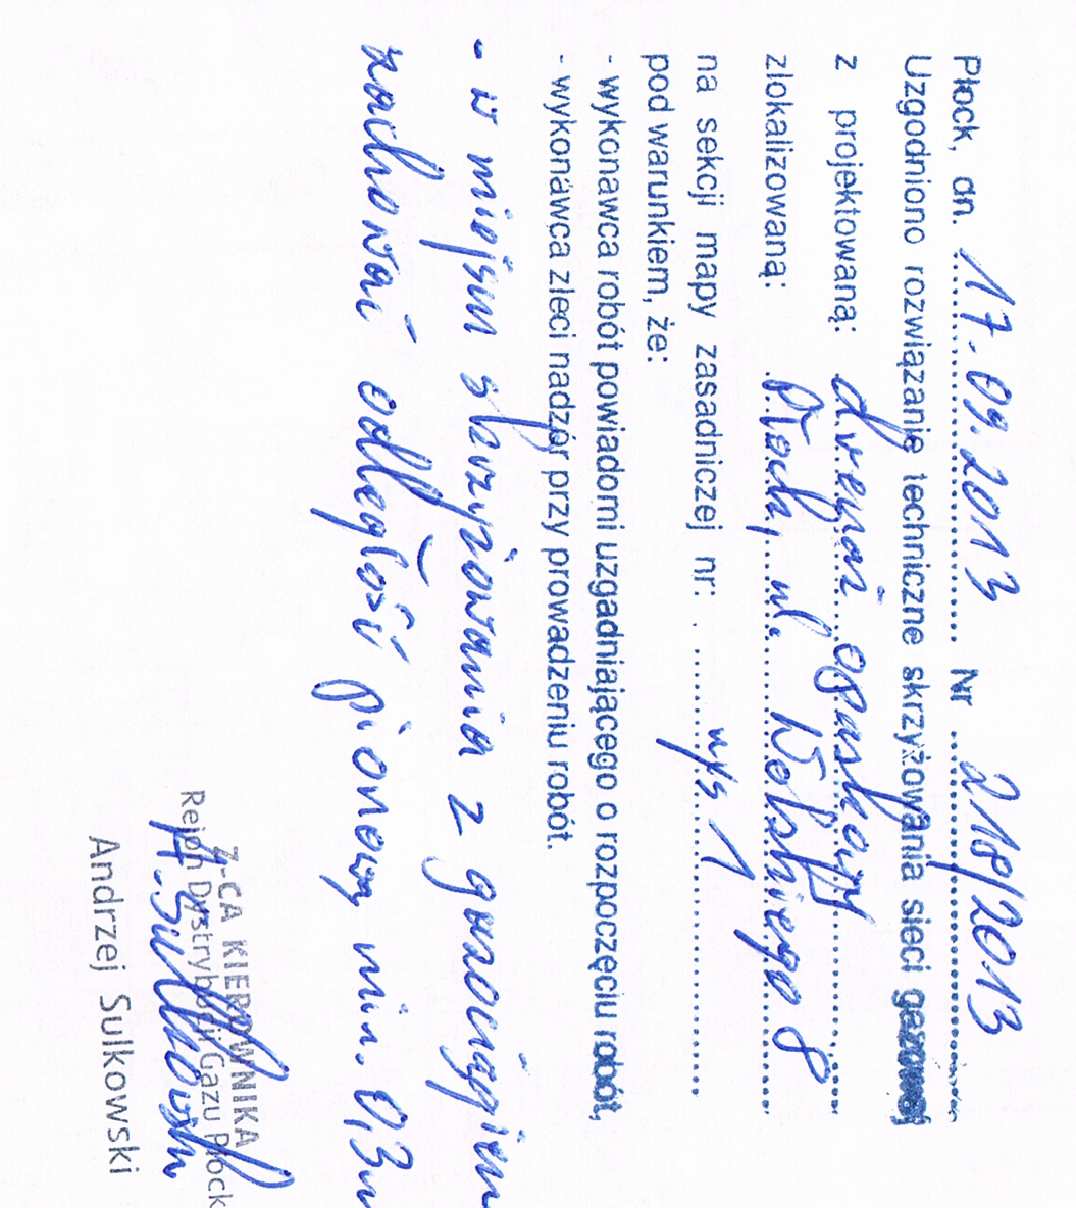 Płock, dn. 17.09.2013 Nr 218/2013
Uzgodniono rozwiązanie techniczne skrzyżowania sieci gazowej
z projektowaną: drenaż opaskowy
zlokalizowaną: Płock, ul. Wolskiego 8
na sekcji mapy zasadniczej nr: rys 1
pod warunkiem, że:
- wykonawca robót powiadomi uzgadniającego o rozpoczęciu robót,
- wykonawca zleci nadzór przy prowadzeniu robót.
- w miejscu skrzyżowania z gazociągiem
zachować odległość pionową min. 0,3m
Z-CA KIEROWNIKA
Rejon Dystrybucji Gazu Płock
A. Sulkowski
Andrzej Sulkowski